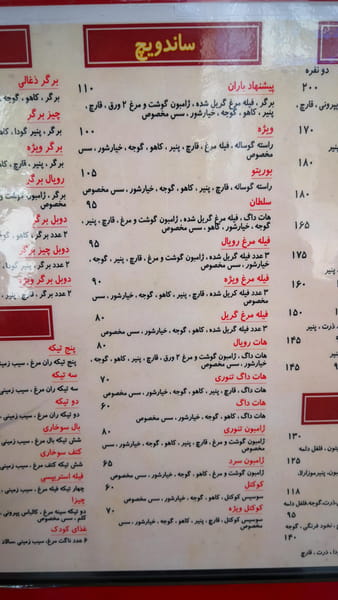 دو نفره
۲۰۰
۱۷۰
۱۸۰
۱۸۰
۱۶۵
۱۷۵
۱۶۰
۱۵۰
۱۴۵
۱۴۵
۱۳۰
۱۲۵
۱۱۸
۹۵
۱۴۰
ساندویچ
پیشنهاد باران ۱۱۰
برگر، فیله مرغ گریل شده، ژامبون گوشت و مرغ ۲ ورق، قارچ،
پنیر، کاهو، گوجه، خیارشور، سس مخصوص
ویژه ۱۰۰
راسته گوساله، فیله مرغ، قارچ، پنیر، کاهو، گوجه، خیارشور، سس
مخصوص
بوریتو ۱۰۵
راسته گوساله، پنیر، کاهو، گوجه، خیارشور، سس مخصوص
سلطان ۹۵
هات داگ، فیله مرغ گریل شده، ژامبون گوشت و مرغ، قارچ، پنیر،
گوجه، خیارشور، کاهو، سس مخصوص
فیله مرغ رویال ۹۵
۳ عدد فیله گریل شده، ژامبون گوشت و مرغ، قارچ، پنیر، گوجه،
خیارشور، سس مخصوص
فیله مرغ ویژه ۹۰
۳ عدد فیله گریل شده، پنیر، قارچ، کاهو، گوجه، خیارشور، سس
مخصوص
فیله مرغ گریل ۸۰
۳ عدد فیله گریل شده، کاهو، گوجه، خیارشور، سس مخصوص
هات رویال ۸۰
هات داگ، ژامبون گوشت و مرغ ۲ ورق، قارچ، پنیر، کاهو، گوجه،
خیارشور، سس مخصوص
هات داگ تنوری ۷۰
هات داگ، قارچ، پنیر، کاهو، گوجه، خیارشور، سس مخصوص
هات داگ ۶۰
هات داگ، کاهو، گوجه، خیارشور، سس مخصوص
ژامبون تنوری ۸۰
ژامبون گوشت و مرغ، قارچ، پنیر، کاهو، گوجه، خیارشور، سس
مخصوص
ژامبون سرد ۶۵
ژامبون گوشت و مرغ، کاهو، گوجه، خیارشور، سس مخصوص
کوکتل ۶۰
سوسیس کوکتل، کاهو، گوجه، خیارشور، سس مخصوص
کوکتل ویژه ۷۰
سوسیس کوکتل، قارچ، پنیر، کاهو، گوجه، خیارشور، سس
مخصوص
برگر ذغالی
برگر، کاهو، گوجه،
چیز برگر
برگر، پنیر گودا، کاهو
برگر ویژه
برگر، پنیر، قارچ، کاهو
رویال برگر
برگر، ژامبون گوشت و
دوبل برگر
۲ عدد برگر، کاهو، گوجه
دوبل چیز برگر
۲ عدد برگر، پنیر گودا،
دوبل برگر ویژه
۲ عدد برگر، پنیر، قارچ
پنج تیکه
پنج تیکه ران مرغ، سیب زمینی
سه تیکه
سه تیکه ران مرغ، سیب زمینی
دو تیکه
دو تیکه ران مرغ، سیب زمینی
بال سوخاری
شش تیکه بال مرغ، سیب زمینی
کتف سوخاری
شش تیکه کتف مرغ، سیب زمینی
فیله استریپسی
چهار تیکه فیله مرغ، سیب زمینی
چیزا
دو تیکه سینه مرغ، کالباس پپرونی،
کلم، سس مخصوص
غذای کودک
۶ عدد ناگت مرغ، سیب زمینی، سالاد